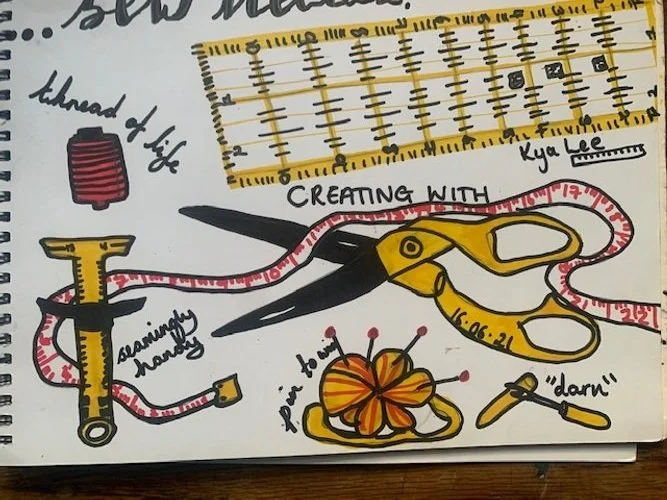 ...sew
thread of life
Kya Lee
CREATING WITH
17
16.06.21
seamingly
handy
pin to win
"darn"